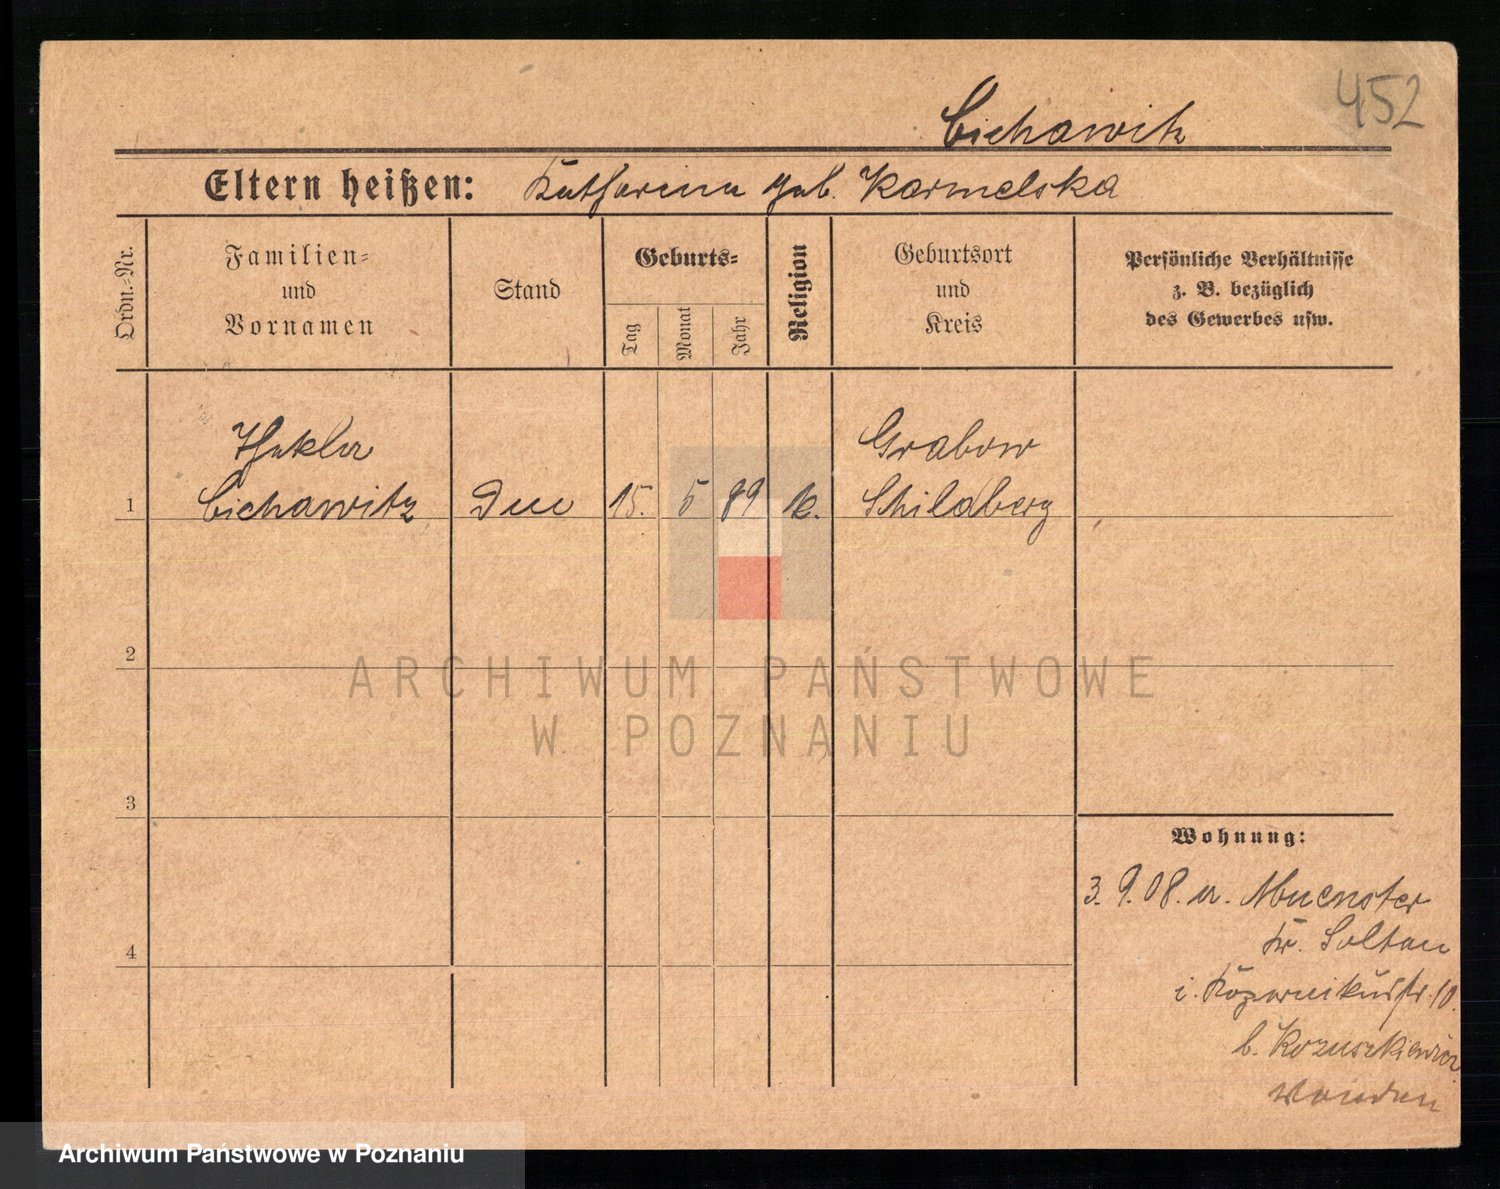 452
Cichawitz
Eltern heißen: Katharina geb. Karmelska
Ordn.-Nr.
Familien-
und
Vornamen
Stand
Geburts-
Tag
Monat
Jahr
Religion
Geburtsort
und
Kreis
Persönliche Verhältnisse
z. B. bezüglich
des Gewerbes usw.
Thekla Grabow
1 Cichawitz 15. 5 89 k. Schildberg
2
ARCHIWUM PAŃSTWOWE
W POZNANIU
3
Wohnung:
3. 9. 08. a. Muenster
Kr. Soltau
i. Kopernikusstr. 10.
b. Kozuszkiewicz
4
Archiwum Państwowe w Poznaniu